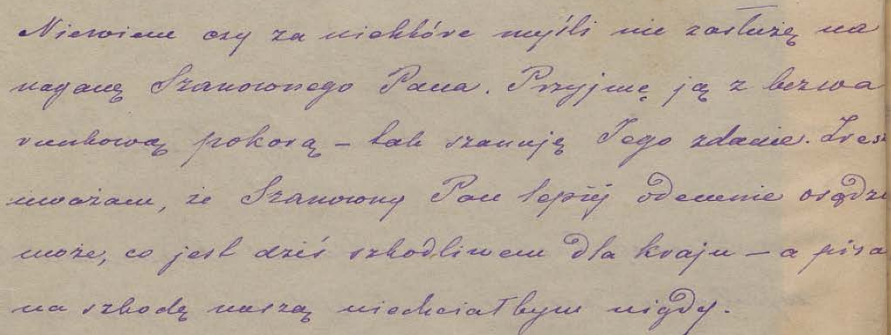 Niewiem czy za niektóre myśli nie zasłużę na
naganę Szanownego Pana. Przyjmę ją z bezwa
runkową pokorą – tak szanuję Jego zdanie. Zresz
uważam, że Szanowny Pan lepiéj odemnie osądzi
może, co jest dziś szkodliwem dla kraju – a pisa
na szkodę naszą niechciałbym nigdy.